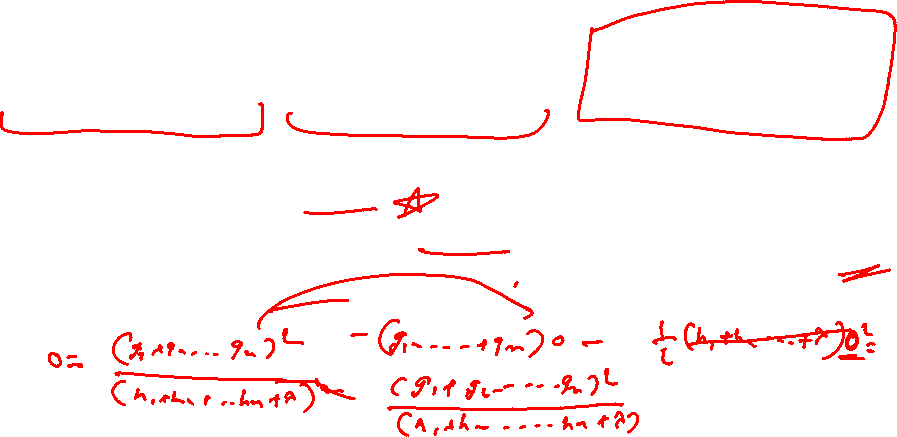 0 = (g₁+g₂....gₙ)² / (h₁+h₂+...hₙ+λ) - (g₁.....+gₙ)0 - 1/2 (h₁+h₂.....+λ)0² =
(g₁+g₂......gₙ)² / (h₁+h₂.....hₙ+λ)